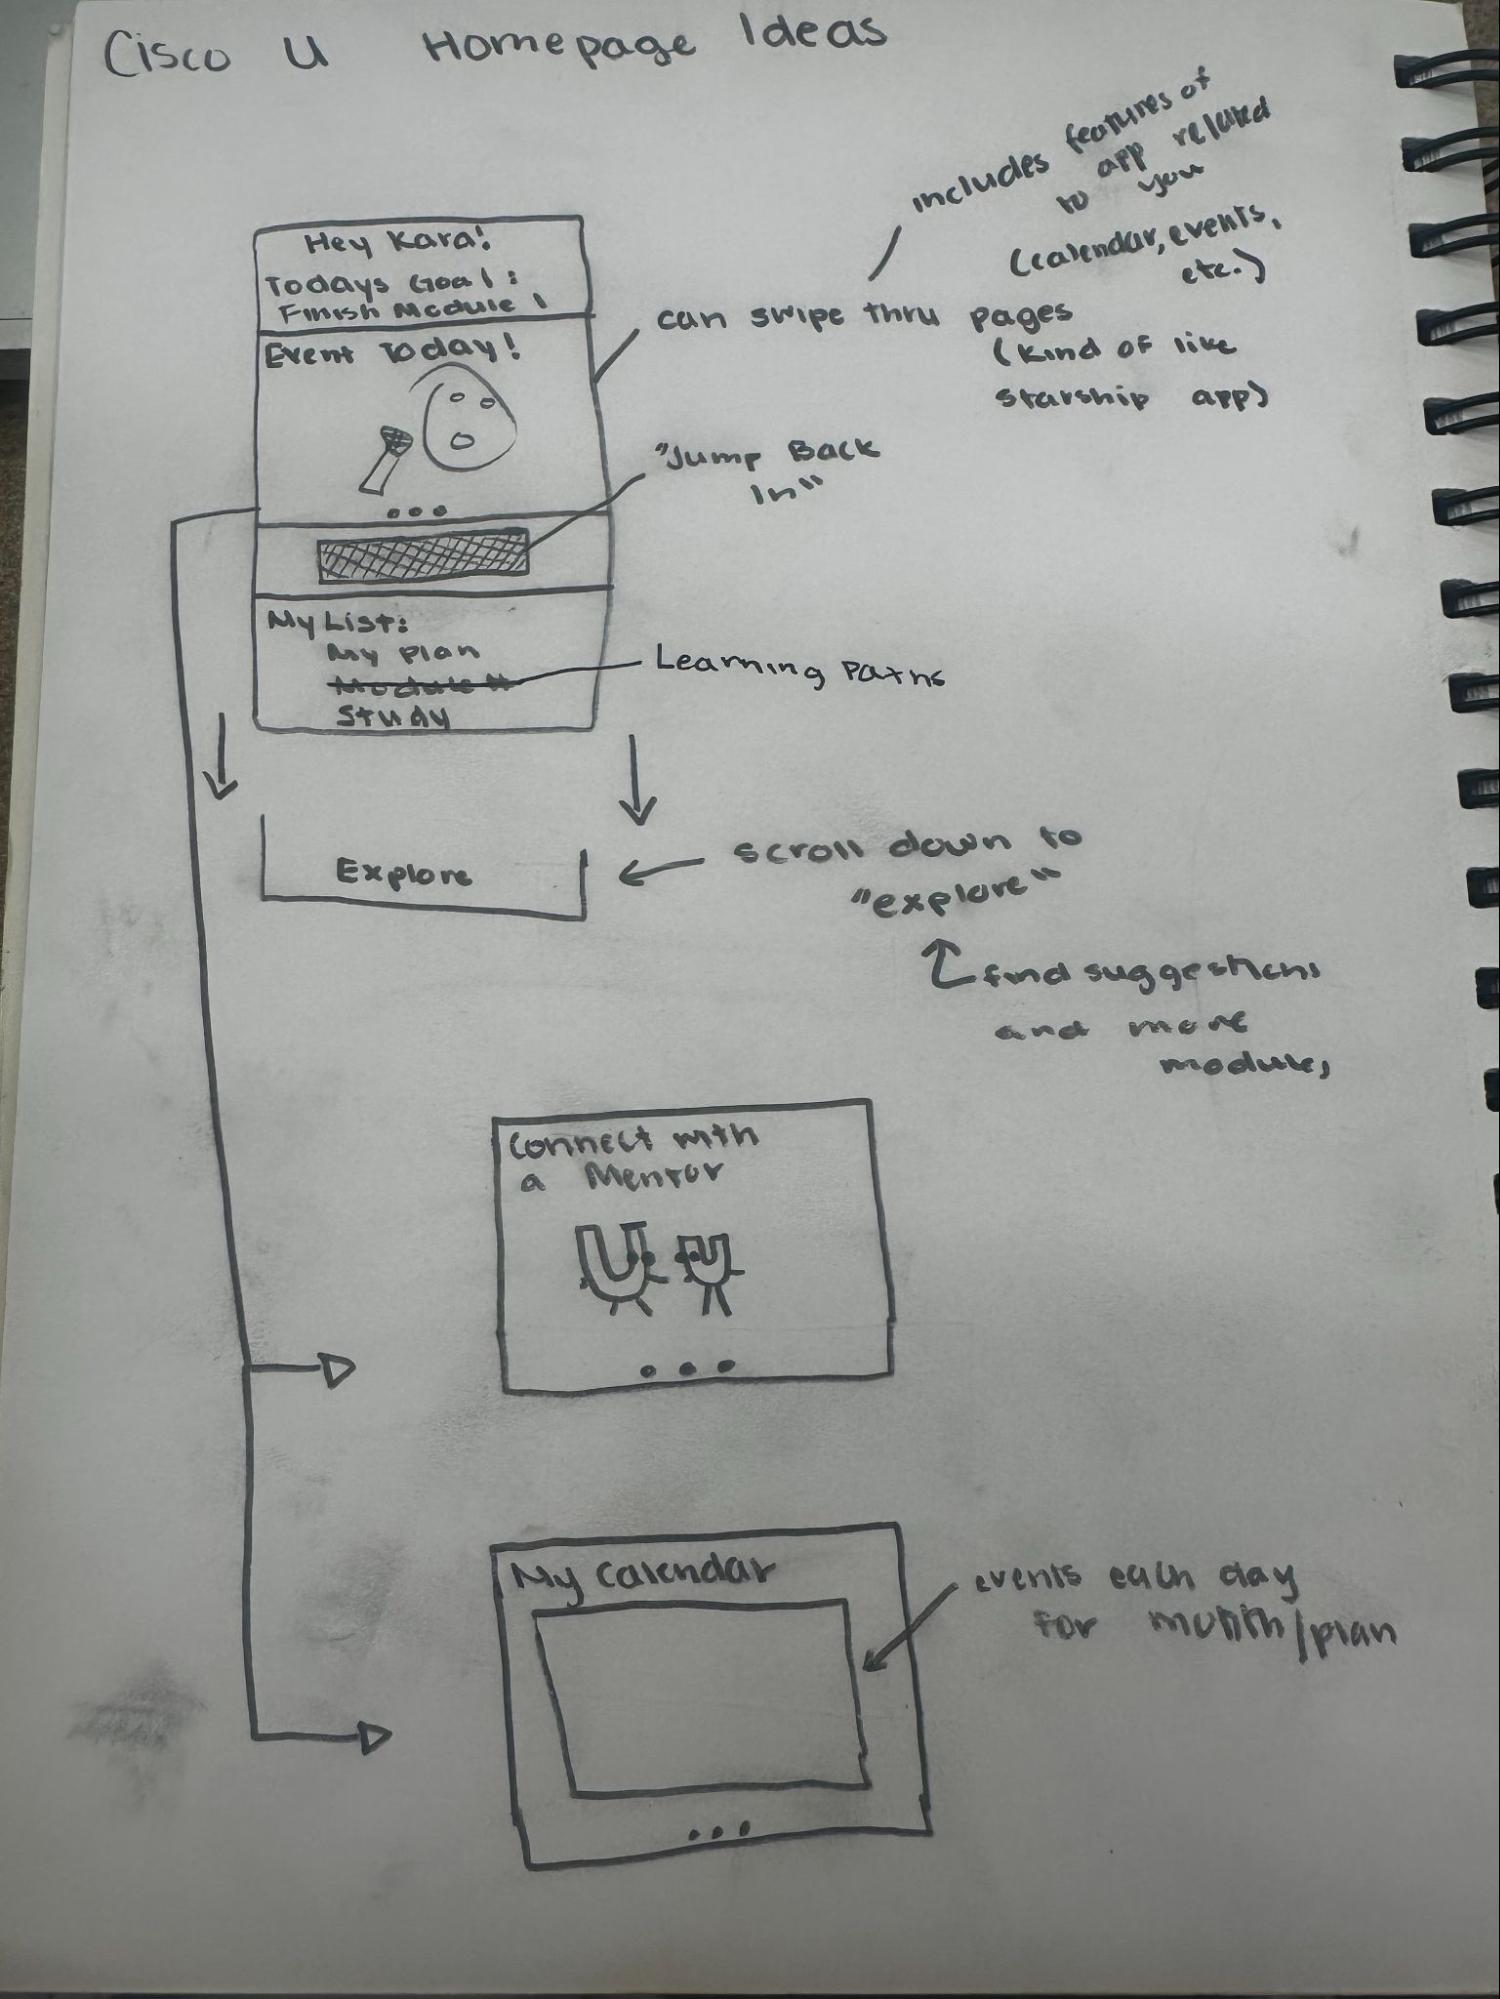 Cisco U Homepage Ideas
includes features of
app related
to you
(calendar, events,
etc.)
Hey Kara!
Todays Goal:
Finish Module 1
can swipe thru pages
(kind of like
starship app)
Event Today!
"Jump Back
In"
My List:
My plan
Module #
Study
Learning Paths
Explore
scroll down to
"explore"
find suggestions
and more
modules
Connect with
a Mentor
U U
My Calendar
events each day
for month/plan